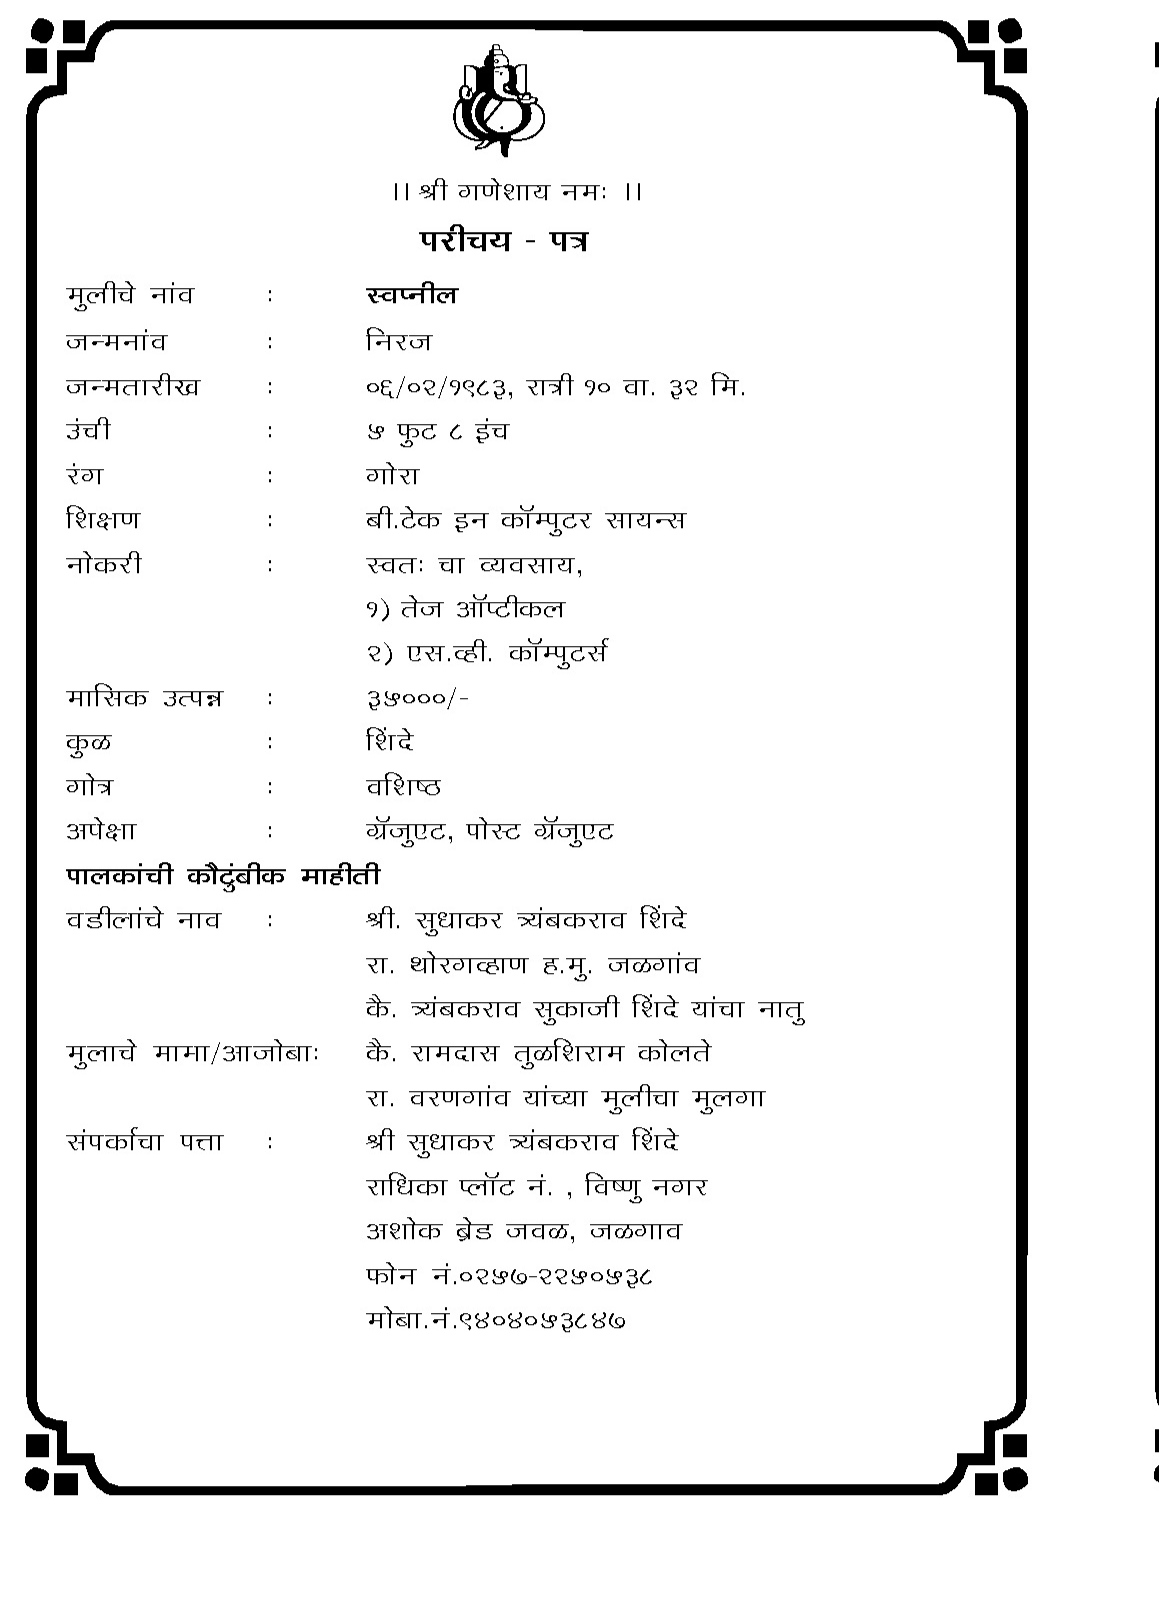 ।। श्री गणेशाय नमः ।।
परीचय - पत्र
मुलीचे नांव : स्वप्नील
जन्मनांव : निरज
जन्मतारीख : ०६/०२/१९८३, रात्री १० वा. ३२ मि.
उंची : ५ फुट ८ इंच
रंग : गोरा
शिक्षण : बी.टेक इन कॉम्पुटर सायन्स
नोकरी : स्वतः चा व्यवसाय,
१) तेज ऑप्टीकल
२) एस.व्ही. कॉम्पुटर्स
मासिक उत्पन्न : ३५०००/-
कुळ : शिंदे
गोत्र : वशिष्ठ
अपेक्षा : ग्रॅजुएट, पोस्ट ग्रॅजुएट
पालकांची कौटुंबीक माहीती
वडीलांचे नाव : श्री. सुधाकर त्र्यंबकराव शिंदे
रा. थोरगव्हाण ह.मु. जळगांव
कै. त्र्यंबकराव सुकाजी शिंदे यांचा नातु
मुलाचे मामा/आजोबाः कै. रामदास तुळशिराम कोलते
रा. वरणगांव यांच्या मुलीचा मुलगा
संपर्काचा पत्ता : श्री सुधाकर त्र्यंबकराव शिंदे
राधिका प्लॉट नं. , विष्णु नगर
अशोक ब्रेड जवळ, जळगाव
फोन नं.०२५७-२२५०५३८
मोबा.नं.९४०४०५३८४७